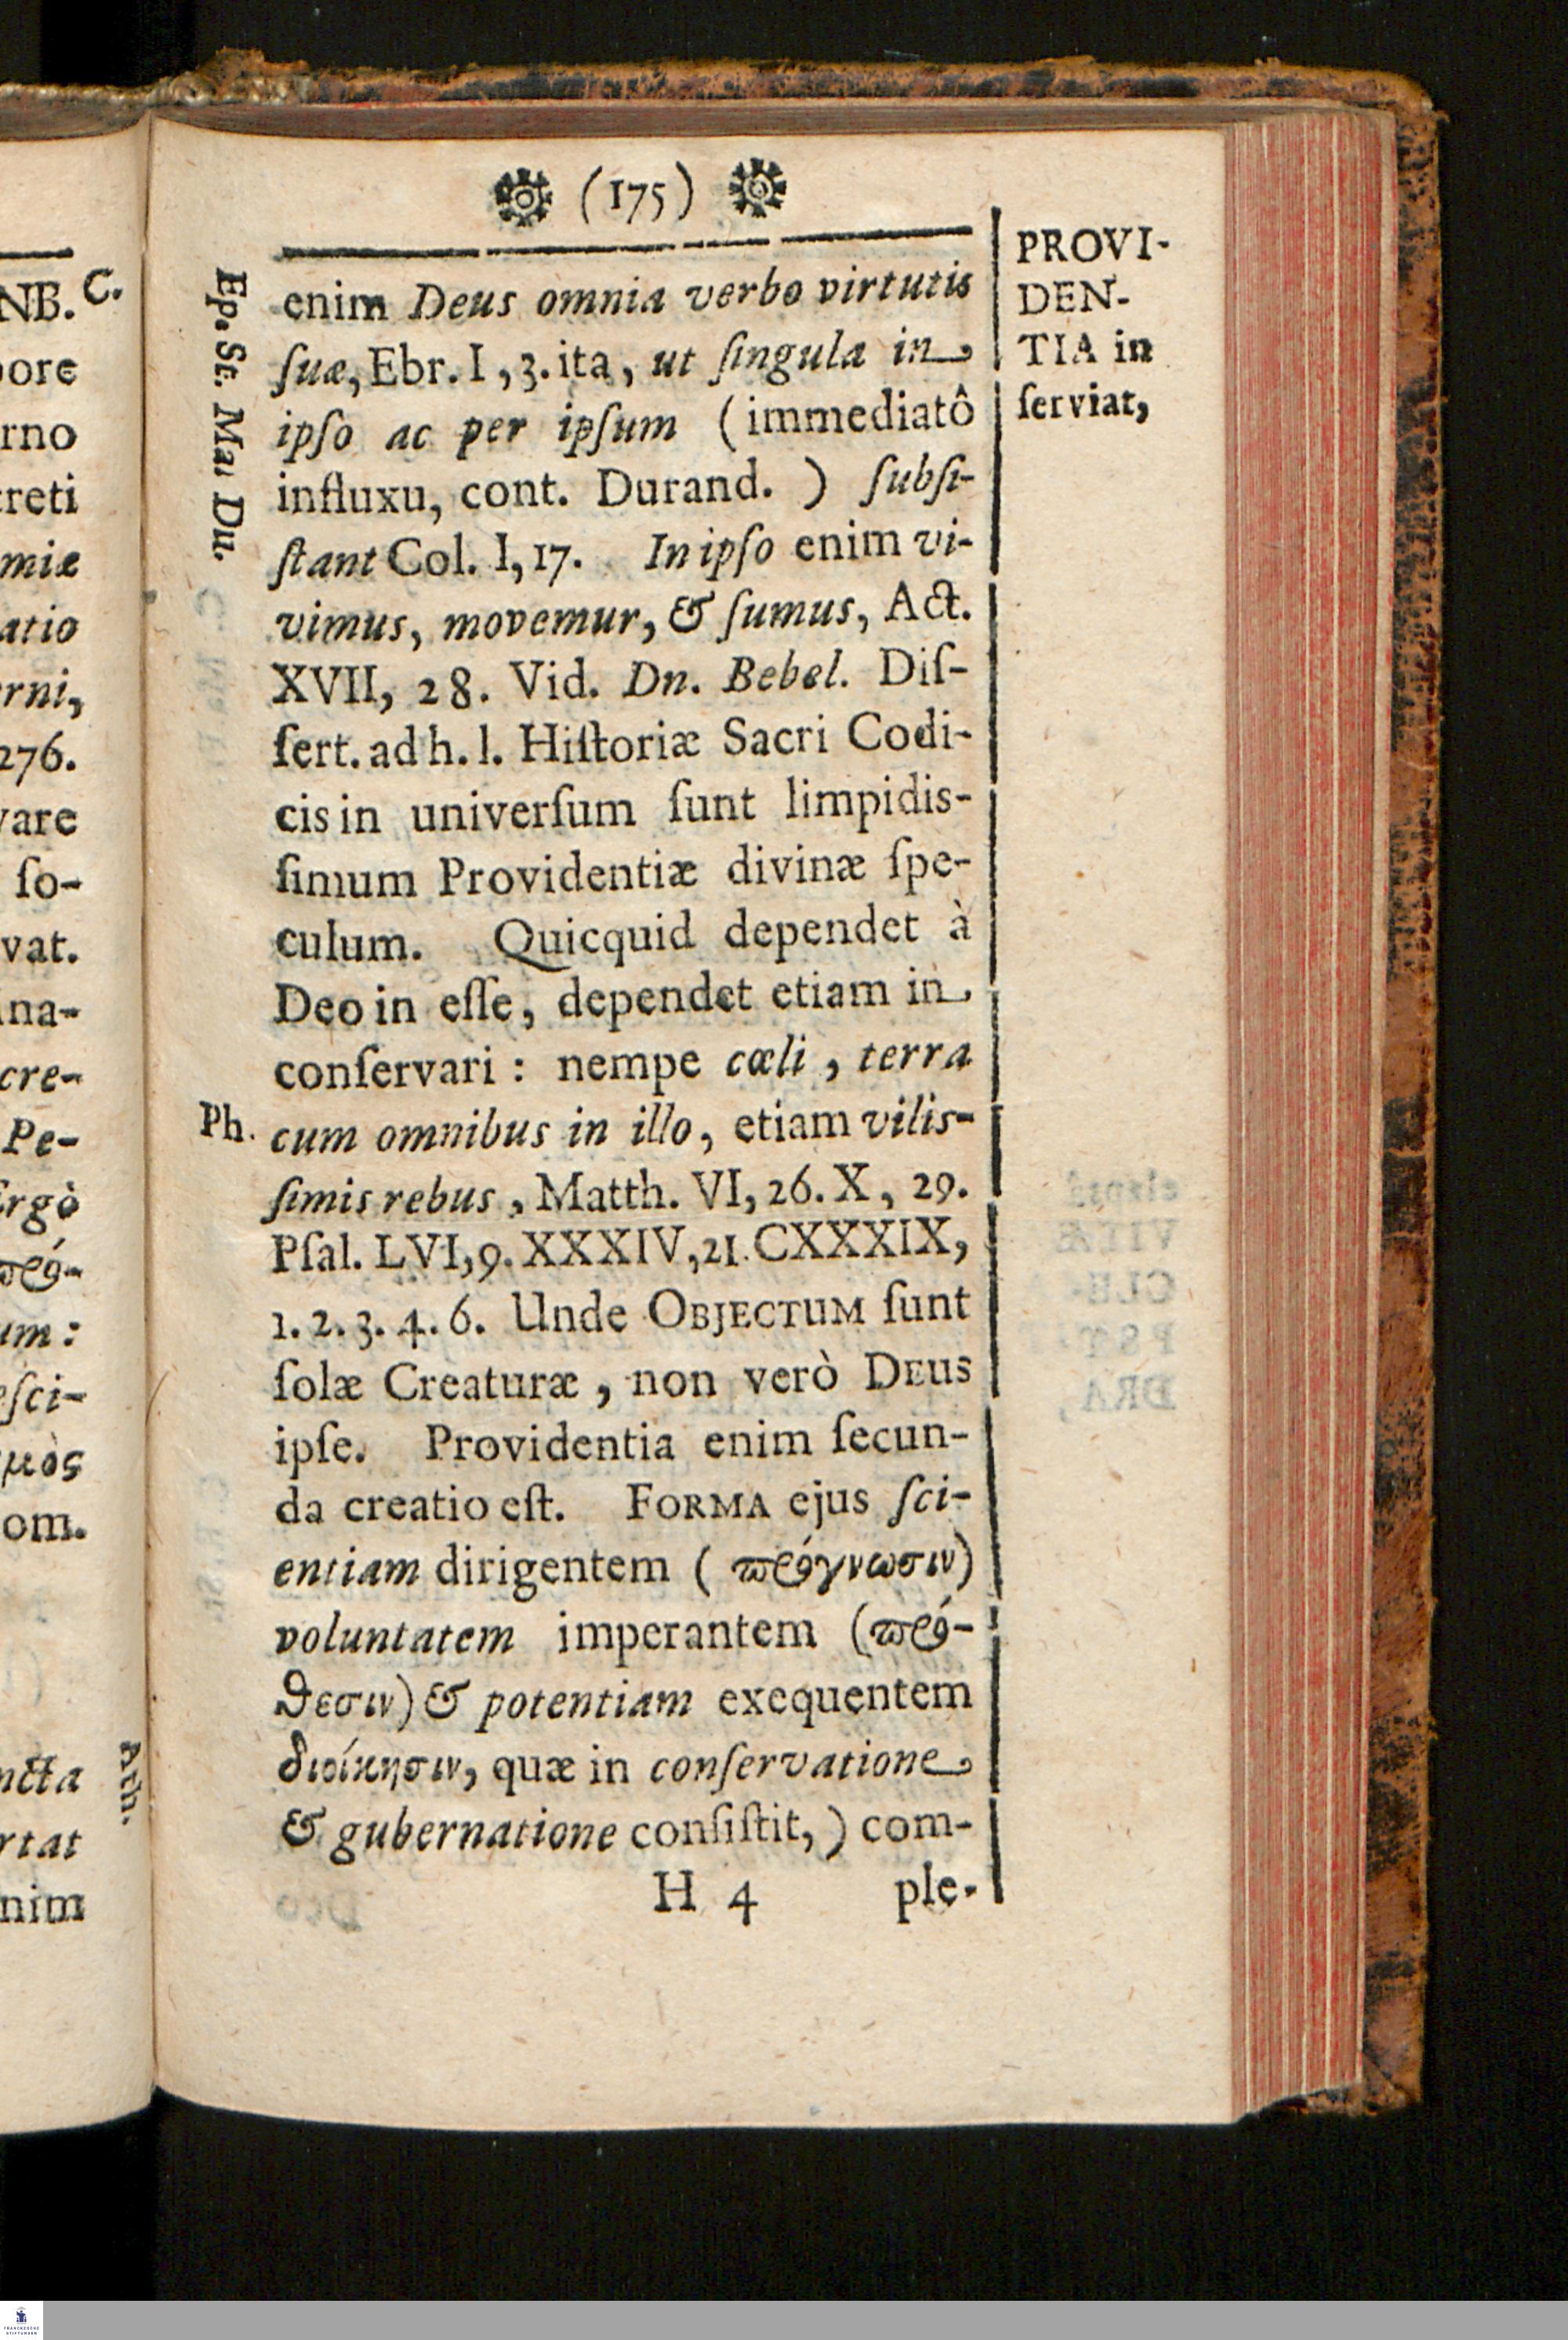 NB. C.
pore
rno
creti
miæ
atio
erni,
276.
vare
ſo-
vat.
cre-
Pe-
Ergò
um:
eſci-
μὸς
om.
ncta
rtat
nim
(175)
PROVI-
DEN-
TIA in
ſerviat,
Ep. St. Ma. Du.
enim Deus omnia verbo virtutis
ſuæ, Ebr. I, 3. ita, ut ſingula in
ipſo ac per ipſum (immediatô
influxu, cont. Durand. ) ſubſi-
ſtant Col. I, 17. In ipſo enim vi-
vimus, movemur, & ſumus, Act.
XVII, 28. Vid. Dn. Bebel. Diſ-
ſert. ad h. l. Hiſtoriæ Sacri Codi-
cis in univerſum ſunt limpidis-
ſimum Providentiæ divinæ ſpe-
culum. Quicquid dependet à
Deo in eſſe, dependet etiam in
conſervari : nempe cœli, terra
Ph. cum omnibus in illo, etiam vilis-
ſimis rebus, Matth. VI, 26. X, 29.
Pſal. LVI, 9. XXXIV, 21. CXXXIX,
1. 2. 3. 4. 6. Unde OBJECTUM ſunt
ſolæ Creaturæ, non verò DEUS
ipſe. Providentia enim ſecun-
da creatio eſt. FORMA ejus ſci-
entiam dirigentem ( πρόγνωσιν)
voluntatem imperantem (πρό-
θεσιν) & potentiam exequentem
διοίκησιν, quæ in conſervatione
& gubernatione conſiſtit, ) com-
H 4 ple-
FRANCKESCHE
STIFTUNGEN